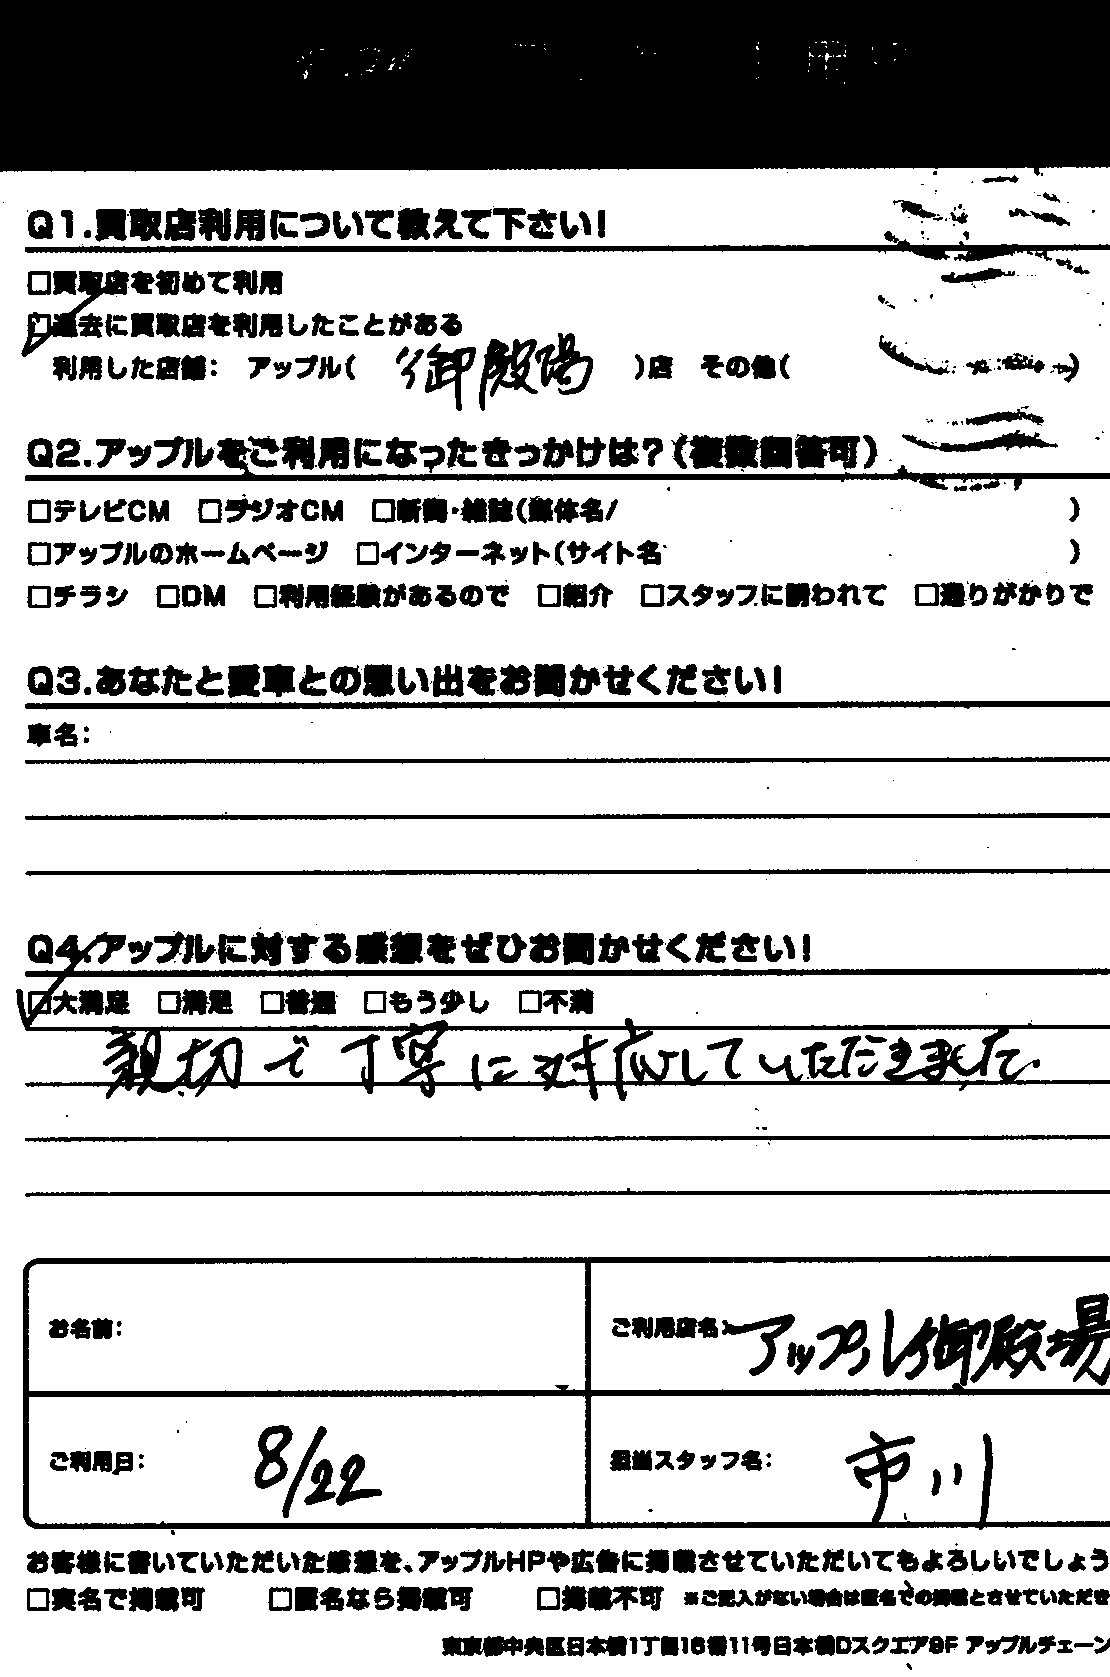 Q1.買取店利用について教えて下さい!
□買取店を初めて利用
☑過去に買取店を利用したことがある
利用した店舗: アップル( 御殿場 )店 その他( )
Q2.アップルをご利用になったきっかけは?(複数回答可)
□テレビCM □ラジオCM □新聞・雑誌(媒体名/ )
□アップルのホームページ □インターネット(サイト名 )
□チラシ □DM □利用経験があるので □紹介 □スタッフに誘われて □通りがかりで
Q3.あなたと愛車との思い出をお聞かせください!
車名:
Q4.アップルに対する感想をぜひお聞かせください!
☑大満足 □満足 □普通 □もう少し □不満
親切で丁寧に対応していただきました.
お名前:
ご利用店名: アップル御殿場
ご利用日: 8/22
担当スタッフ名: 市川
お客様に書いていただいた感想を、アップルHPや広告に掲載させていただいてもよろしいでしょう
□実名で掲載可 □匿名なら掲載可 □掲載不可 ※ご記入がない場合は匿名での掲載とさせていただき
東京都中央区日本橋1丁目16番11号日本橋Dスクエア9F アップルチェーン